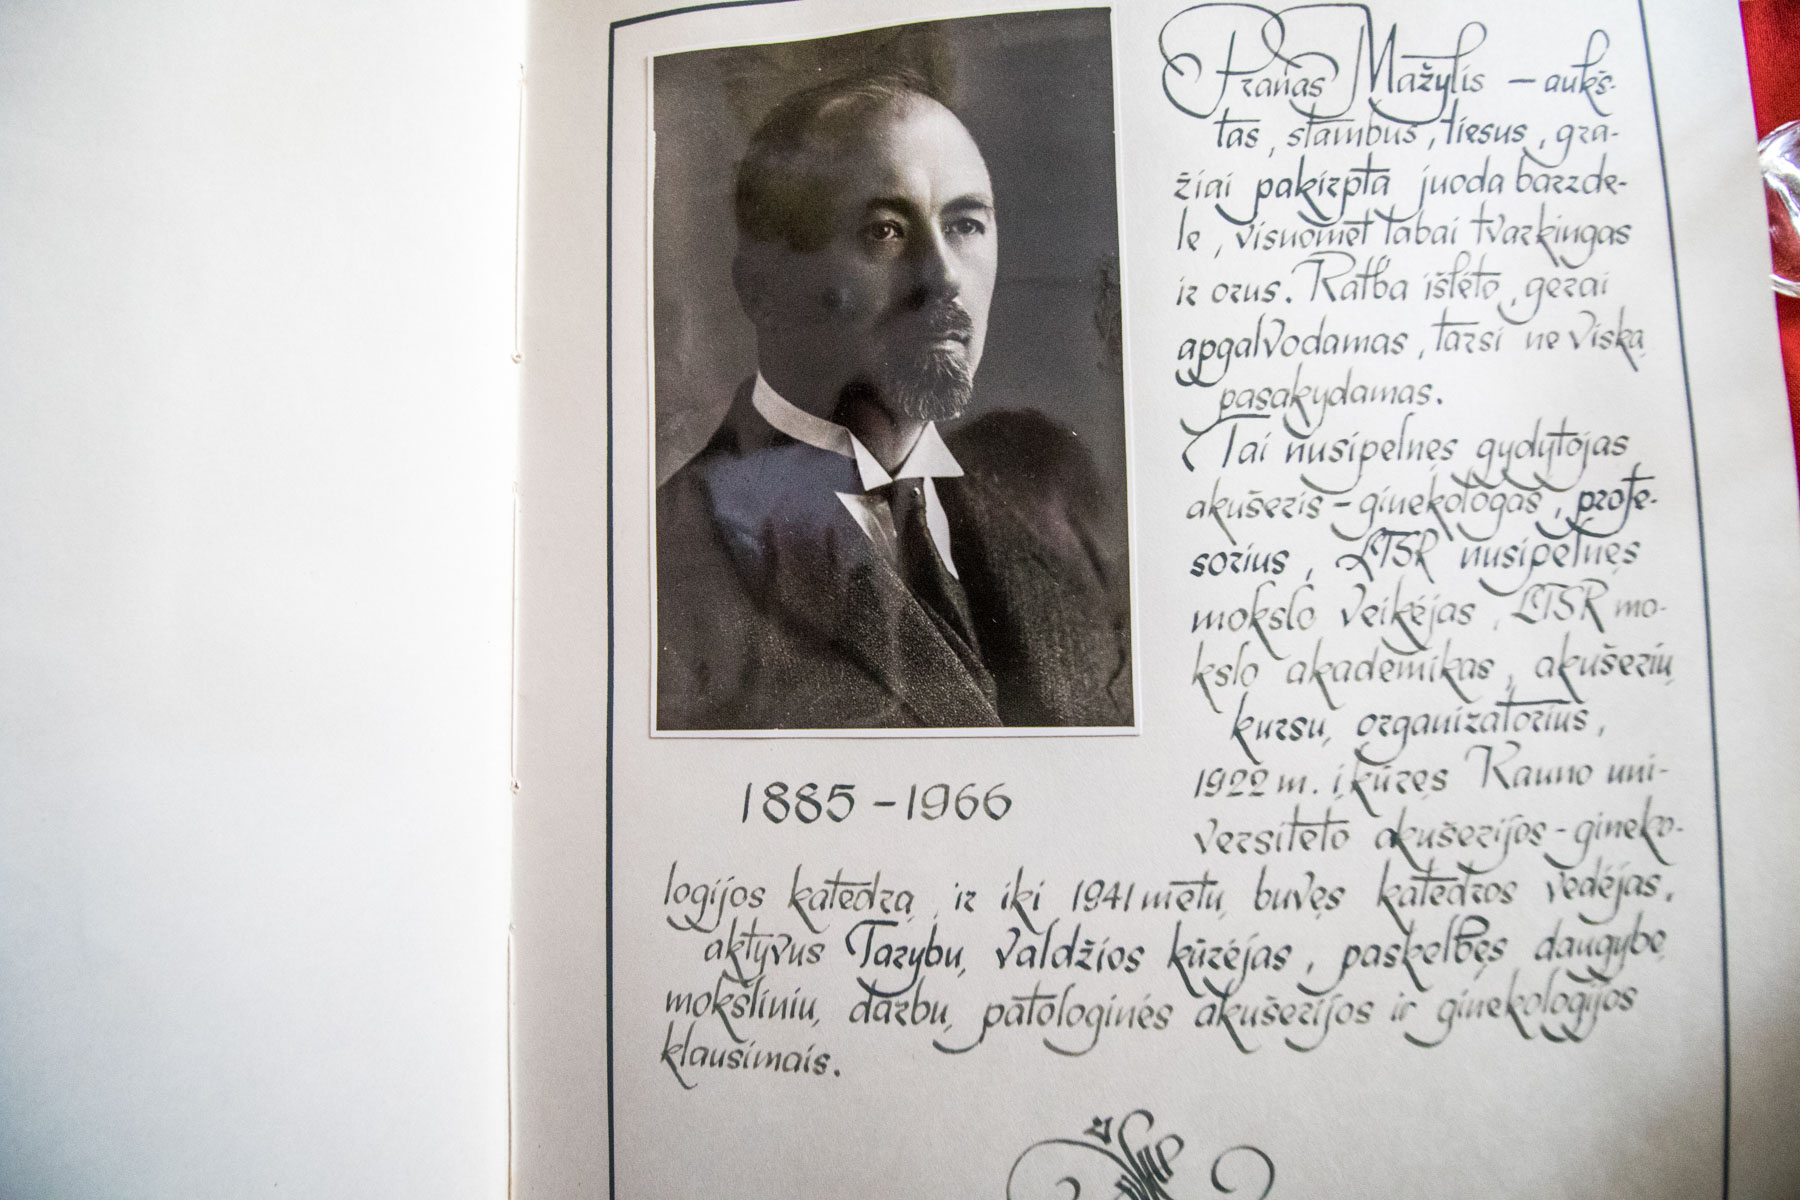 Pranas Mažylis – aukš-
tas, stambus, tiesus, gra-
žiai pakirpta juoda barzde-
le, visuomet labai tvarkingas
ir orus. Kalba išlėto, gerai
apgalvodamas, tarsi ne viską
pasakydamas.
Tai nusipelnęs gydytojas
akušeris-ginekologas, profe-
sorius, LTSR nusipelnęs
mokslo veikėjas, LTSR mo-
kslo akademikas, akušerių
kursų organizatorius,
1922 m. įkūręs Kauno uni-
versiteto akušerijos-gineko-
1885 – 1966
logijos katedrą, ir iki 1941 metų buvęs katedros vedėjas,
aktyvus Tarybų valdžios kūrėjas, paskelbęs daugybę
mokslinių darbų patologinės akušerijos ir ginekologijos
klausimais.